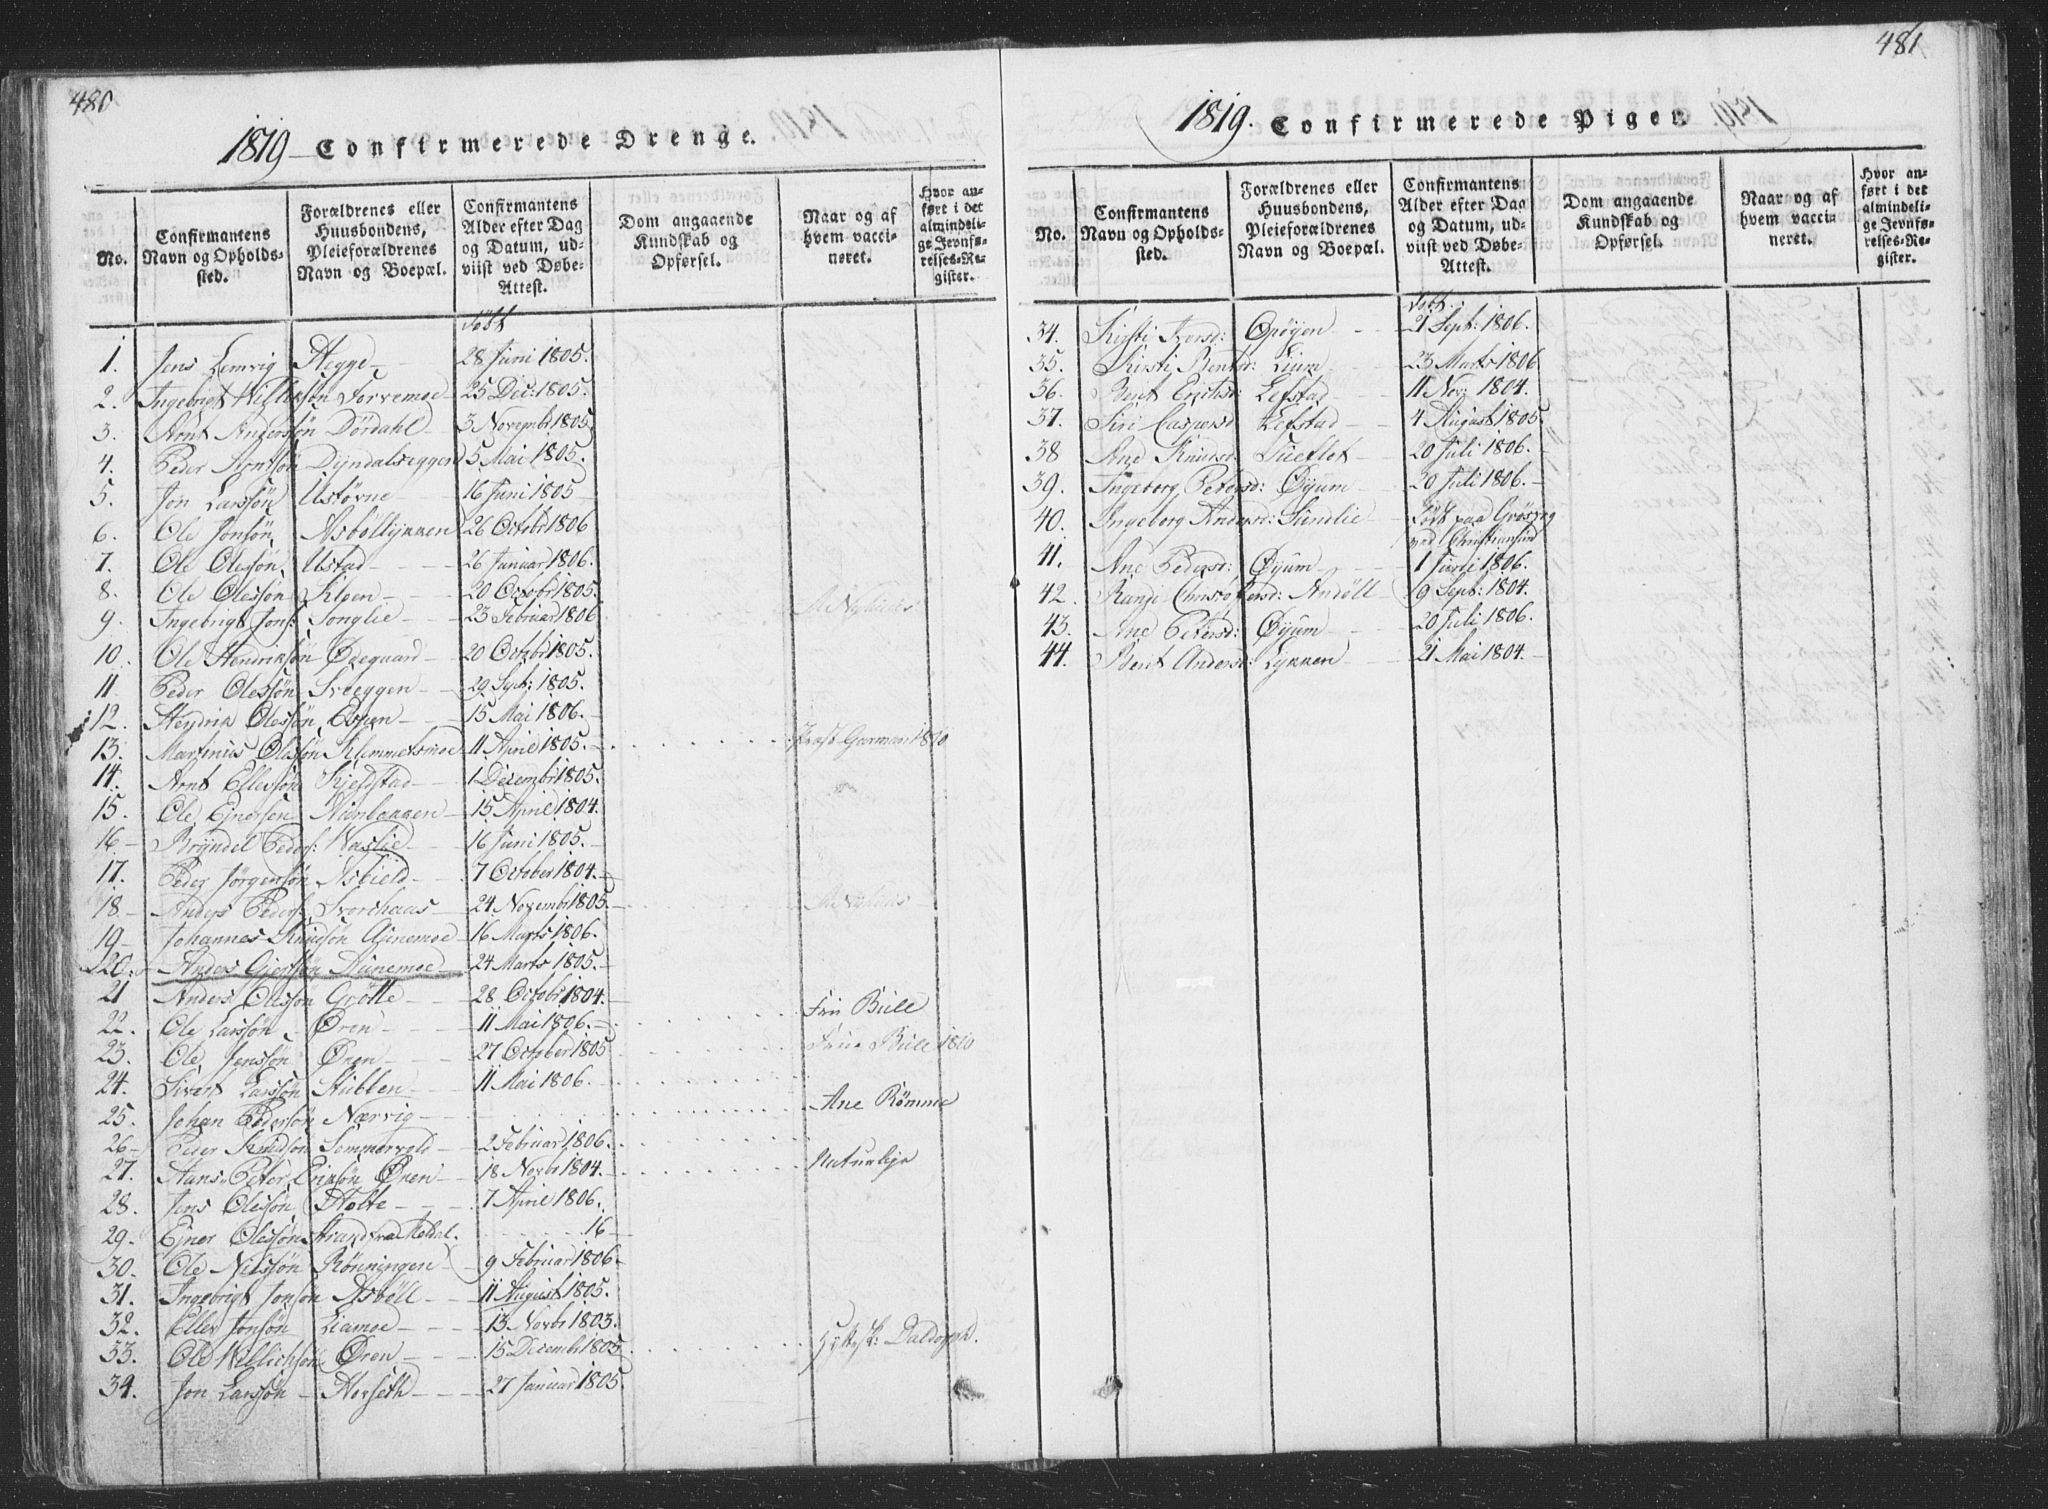 480
1819 Confirmerede Drenge.
No. Confirmantens Navn og Opholdssted. Forældrenes eller Huusbondens, Pleieforældrenes Navn og Boepæl. Confirmantens Alder efter Dag og Datum, udviist ved Døbe-Attest. Dom angaaende Kundskab og Opførsel. Naar og af hvem vaccineret. Hvor anført i det almindelige Jevnførelses-Register.
født
1. Jens Lemvig Hegge 28 Juni 1805.
2. Ingebrigt Torvemoe 25 Dec: 1805.
3. Arnt Anderssøn Dørdahl 3 Novembr 1805
4. Peder Arntsøn Dyndalseggen 5 Mai 1805.
5. Jon Larssøn Ustørne 16 Juni 1805
6. Ole Jonsøn Asbøllykken 26 Octobr 1806
7. Ole Olessøn Ustad 26 Januar 1806.
8. Ole Olessøn Kleen 20 Octobr 1805.
9. Ingebrigt Jons: Songlie 23 Februar 1806
10. Ole Hendriksøn Ødegaard 20 Octobr 1805.
11 Peder Olessøn Sveeggen 29 Sept: 1805.
12. Hendrik Olessøn 15 Mai 1806.
13. Martinus Olessøn Klemmetsmoe 11 April 1805. Garman 1810
14. Arnt Ellessøn Skjefstad 1 Decembr 1805.
15. Ole Ejnersen 15 April 1804.
16 Bryndel Peders: Vaslie 16 Juni 1805.
17. Peder Jørgensøn Asbield 7 October 1804.
18 Anders Peders: Svorchaas 24 Novembr 1805.
19 Johannes Knudsøn Aunemoe 16 Marts 1806.
20. Anders Aunemoe 24 Marts 1805.
21 Anders Olessøn Grøtte 28 Octobr 1804.
22. Ole Larssøn Øren 11 Mai 1806. Fru Bull
23. Ole Jenssøn Øren 27 October 1805 Frue Bull 1810
24. Sivert Larssøn Stubben 11 Mai 1806.
25. Johan Pedersøn Nærvig Ane Rømme
26 Peder Knudsøn Sommervold 2 Februar 1806.
27. Hans Peter Eriksøn Øren 18 Novbr 1804. Naturlige
28. Jens Olessøn Holte 7 April 1806.
29. Ejner Olessøn Strand fra Meldal. 16
30. Ole Nilssøn Rønningen 9 Februar 1806
31. Ingebrigt Jonsøn Asbøll 11 August 1805.
32. Eller Jonsøn Liamoe 13 Novbr 1803.
33. Ole Øren 15 Decembr 1805
34. Jon Larssøn Horseth 27 Januar 1805.
481
1819. Confirmerede Piger.
No. Confirmantens Navn og Opholdssted. Forældrenes eller Huusbondens, Pleieforældrenes Navn og Boepæl. Confirmantens Alder efter Dag og Datum, udviist ved Døbe-Attest. Dom angaaende Kundskab og Opførsel. Naar og af hvem vaccineret. Hvor anført i det almindelige Jevnførelses-Register.
født
34. Kirsti Iversd: Opøyen 21 Sept: 1806.
35. Kirsti Bentsd: Lium 23 Marts 1806
36. Berit Ericksd: Lefstad 11 Nov: 1804.
37. Siri Caspersd Lefstad 4 August 1805.
38 Ane Knudsd: 20 Juli 1806.
39. Ingeborg Petersd: Øyum 20 Juli 1806.
40. Ingeborg Andersd: Sundlie født paa
ved Christiansund
41. Ane Pedersd: Øyum 1 Juni 1806.
42. Randi Christophersd: Andøll 9 Sept: 1804.
43. Ane Petersd: Øyum 20 Juli 1806.
44. Berit Andersd: Lykken 21 Mai 1804.